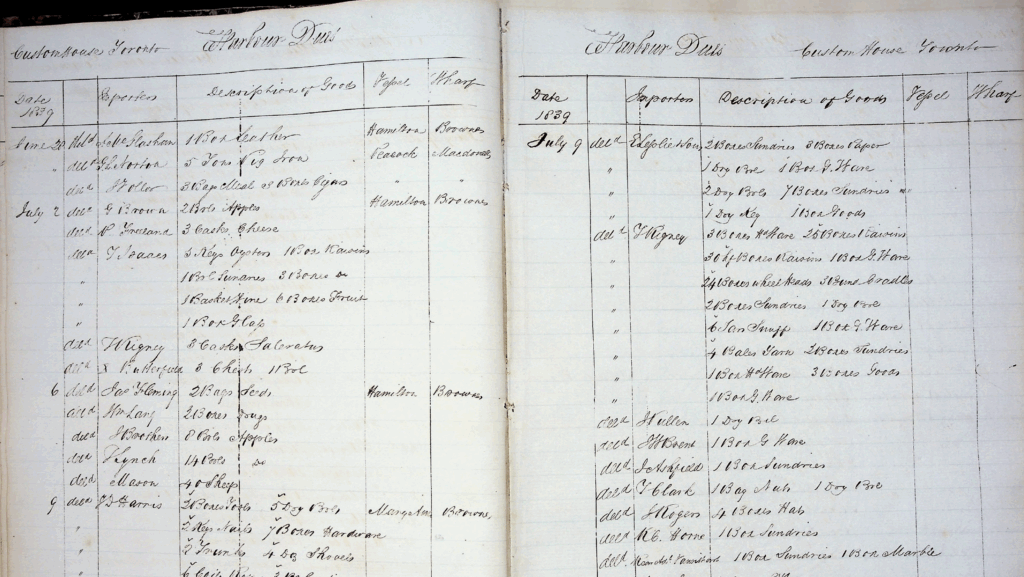 Custom House Toronto Harbour Dues
Date 1839 Exporters Description of Goods Vessel Wharf
June 20 deld 1 Box Leather Hamilton Brownes
" deld Norton 5 Tons Pig Iron Peacock Macdonalds
deld 3 Bags Meal 3 Boxes Cigars " "
July 2 deld G Brown 2 Brls Apples Hamilton Brownes
deld Freeland 3 Casks Cheese
deld J Isaacs 3 Kegs Oysters 1 Box Raisins
" 1 Brl Sundries 3 Boxes do
" 1 Basket Wine 6 Boxes Fruit
" 1 Box Glass
deld T Rigney Casks Saleratus
deld Butterfield 3 Chests 1 Brl
6 deld Jas Fleming 2 Bags Seeds Hamilton Brownes
deld Wm Lang 2 Boxes Drugs
deld J Brothers 8 Brls Apples
deld Lynch 14 Brls do
deld Mason 40 Sheep
9 deld Harris 2 Boxes Tools 5 Dry Brls Mary Ann Brownes
" 2 Kegs Nails 7 Boxes Hardware
" 2 Trunks 4 Doz Shovels
"
Harbour Dues Custom House Toronto
Date 1839 Importers Description of Goods Vessel Wharf
July 9 deld E Leslie & Sons 2 Boxes Sundries 3 Boxes Paper
" 1 Dry Brl 1 Box G. Ware
" 2 Dry Brls 7 Boxes Sundries
" 1 Dry Keg 1 Box Goods
deld T Rigney 3 Boxes Hd Ware 25 Boxes Raisins
" 30 Hf Boxes Raisins 1 Box G. Ware
" 24 Boxes wheel Heads 3 Bund Cradles
" 2 Boxes Sundries 1 Dry Brl
" 6 Jars Snuff 1 Box G. Ware
" 4 Bales Yarn 2 Boxes Sundries
" 1 Box Hd Ware 3 Boxes Goods
" 1 Box G. Ware
deld 1 Dry Brl
deld J W Brent 1 Box G Ware
deld J Ashfield 1 Box Sundries
deld T Clark 1 Bag Nuts 1 Dry Brl
deld J Rogers 4 Boxes Hats
deld R. C. Horne 1 Box Sundries
deld 1 Box Sundries 1 Box Marble